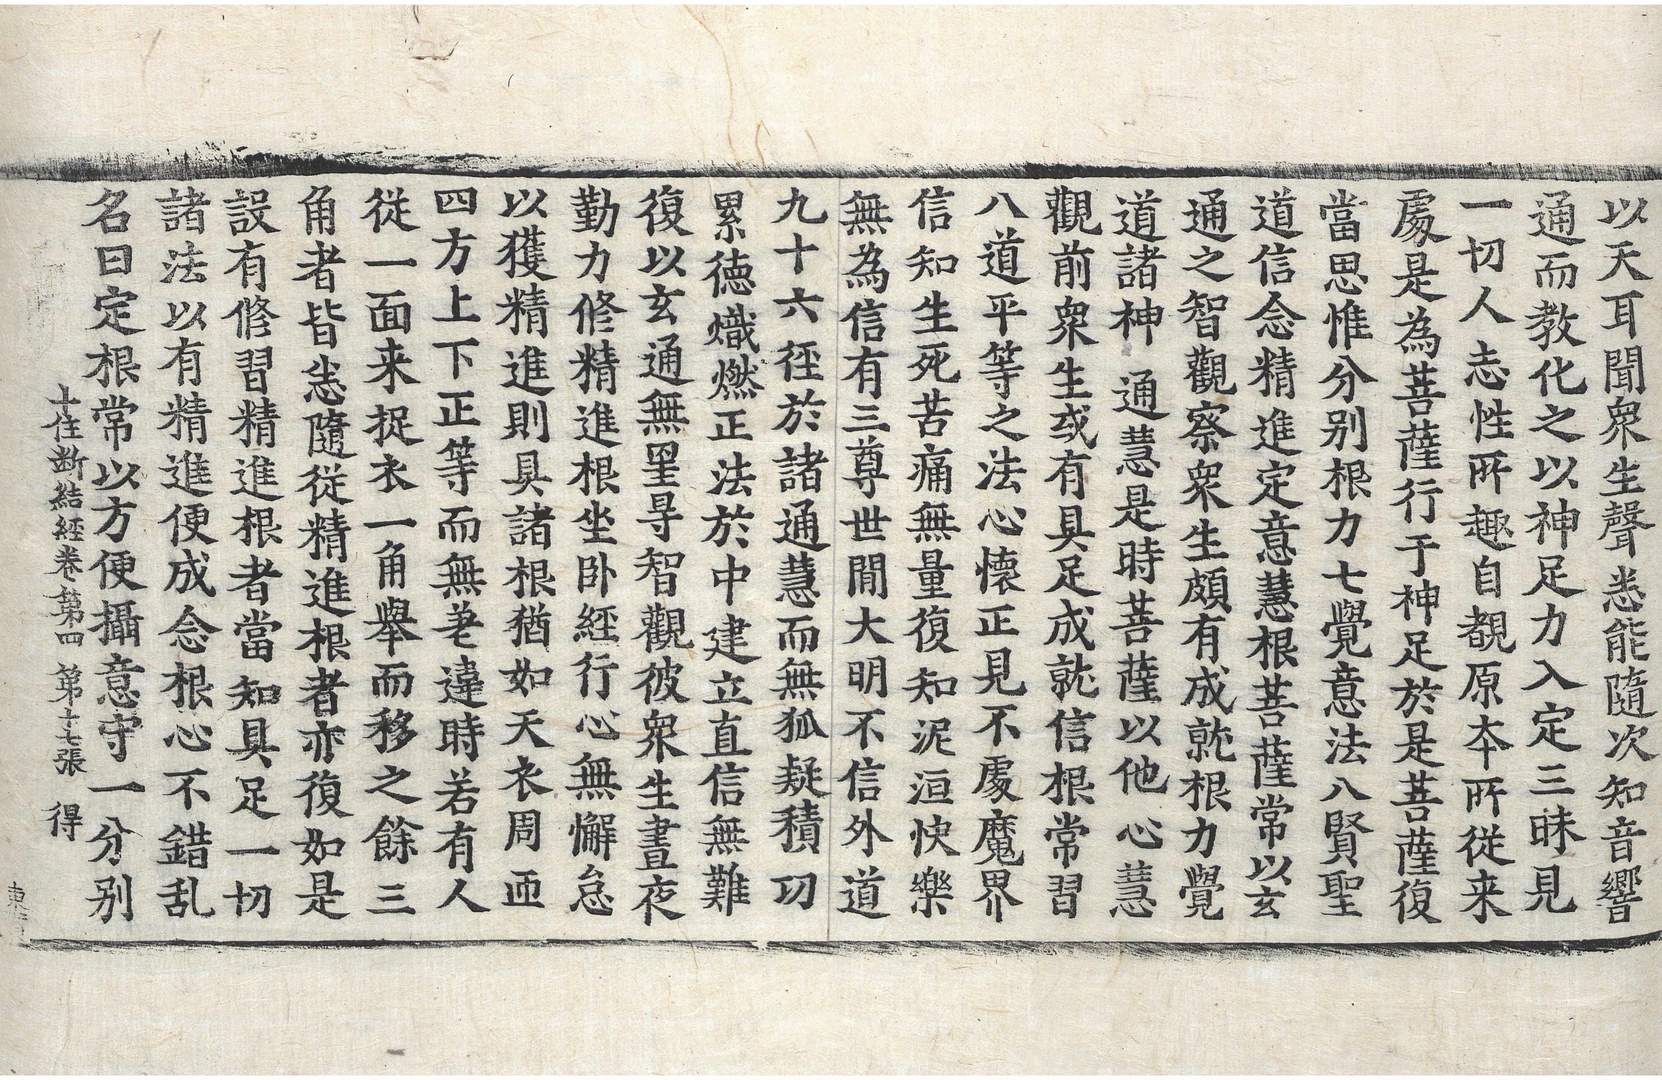 以天耳聞衆生聲悉能隨次知音響
通而教化之以神足力入定三昧見
一切人志性所趣自覩原本所從来
處是為菩薩行于神足於是菩薩復
當思惟分別根力七覺意法八賢聖
道信念精進定意慧根菩薩常以玄
通之智觀察衆生頗有成就根力覺
道諸神通慧是時菩薩以他心慧
觀前衆生或有具足成就信根常習
八道平等之法心懷正見不處魔界
信知生死苦痛無量復知泥洹快樂
無為信有三尊世間大明不信外道
九十六径於諸通慧而無狐疑積功
累德熾燃正法於中建立直信無難
復以玄通無罣㝵智觀彼衆生晝夜
勤力修精進根坐卧經行心無懈怠
以獲精進則具諸根猶如天衣周帀
四方上下正等而無差違時若有人
從一面来捉衣一角舉而移之餘三
角者皆悉隨從精進根者亦復如是
設有修習精進根者當知具足一切
諸法以有精進便成念根心不錯乱
名曰定根常以方便攝意守一分别
十住断結經卷第四 第十七張 得